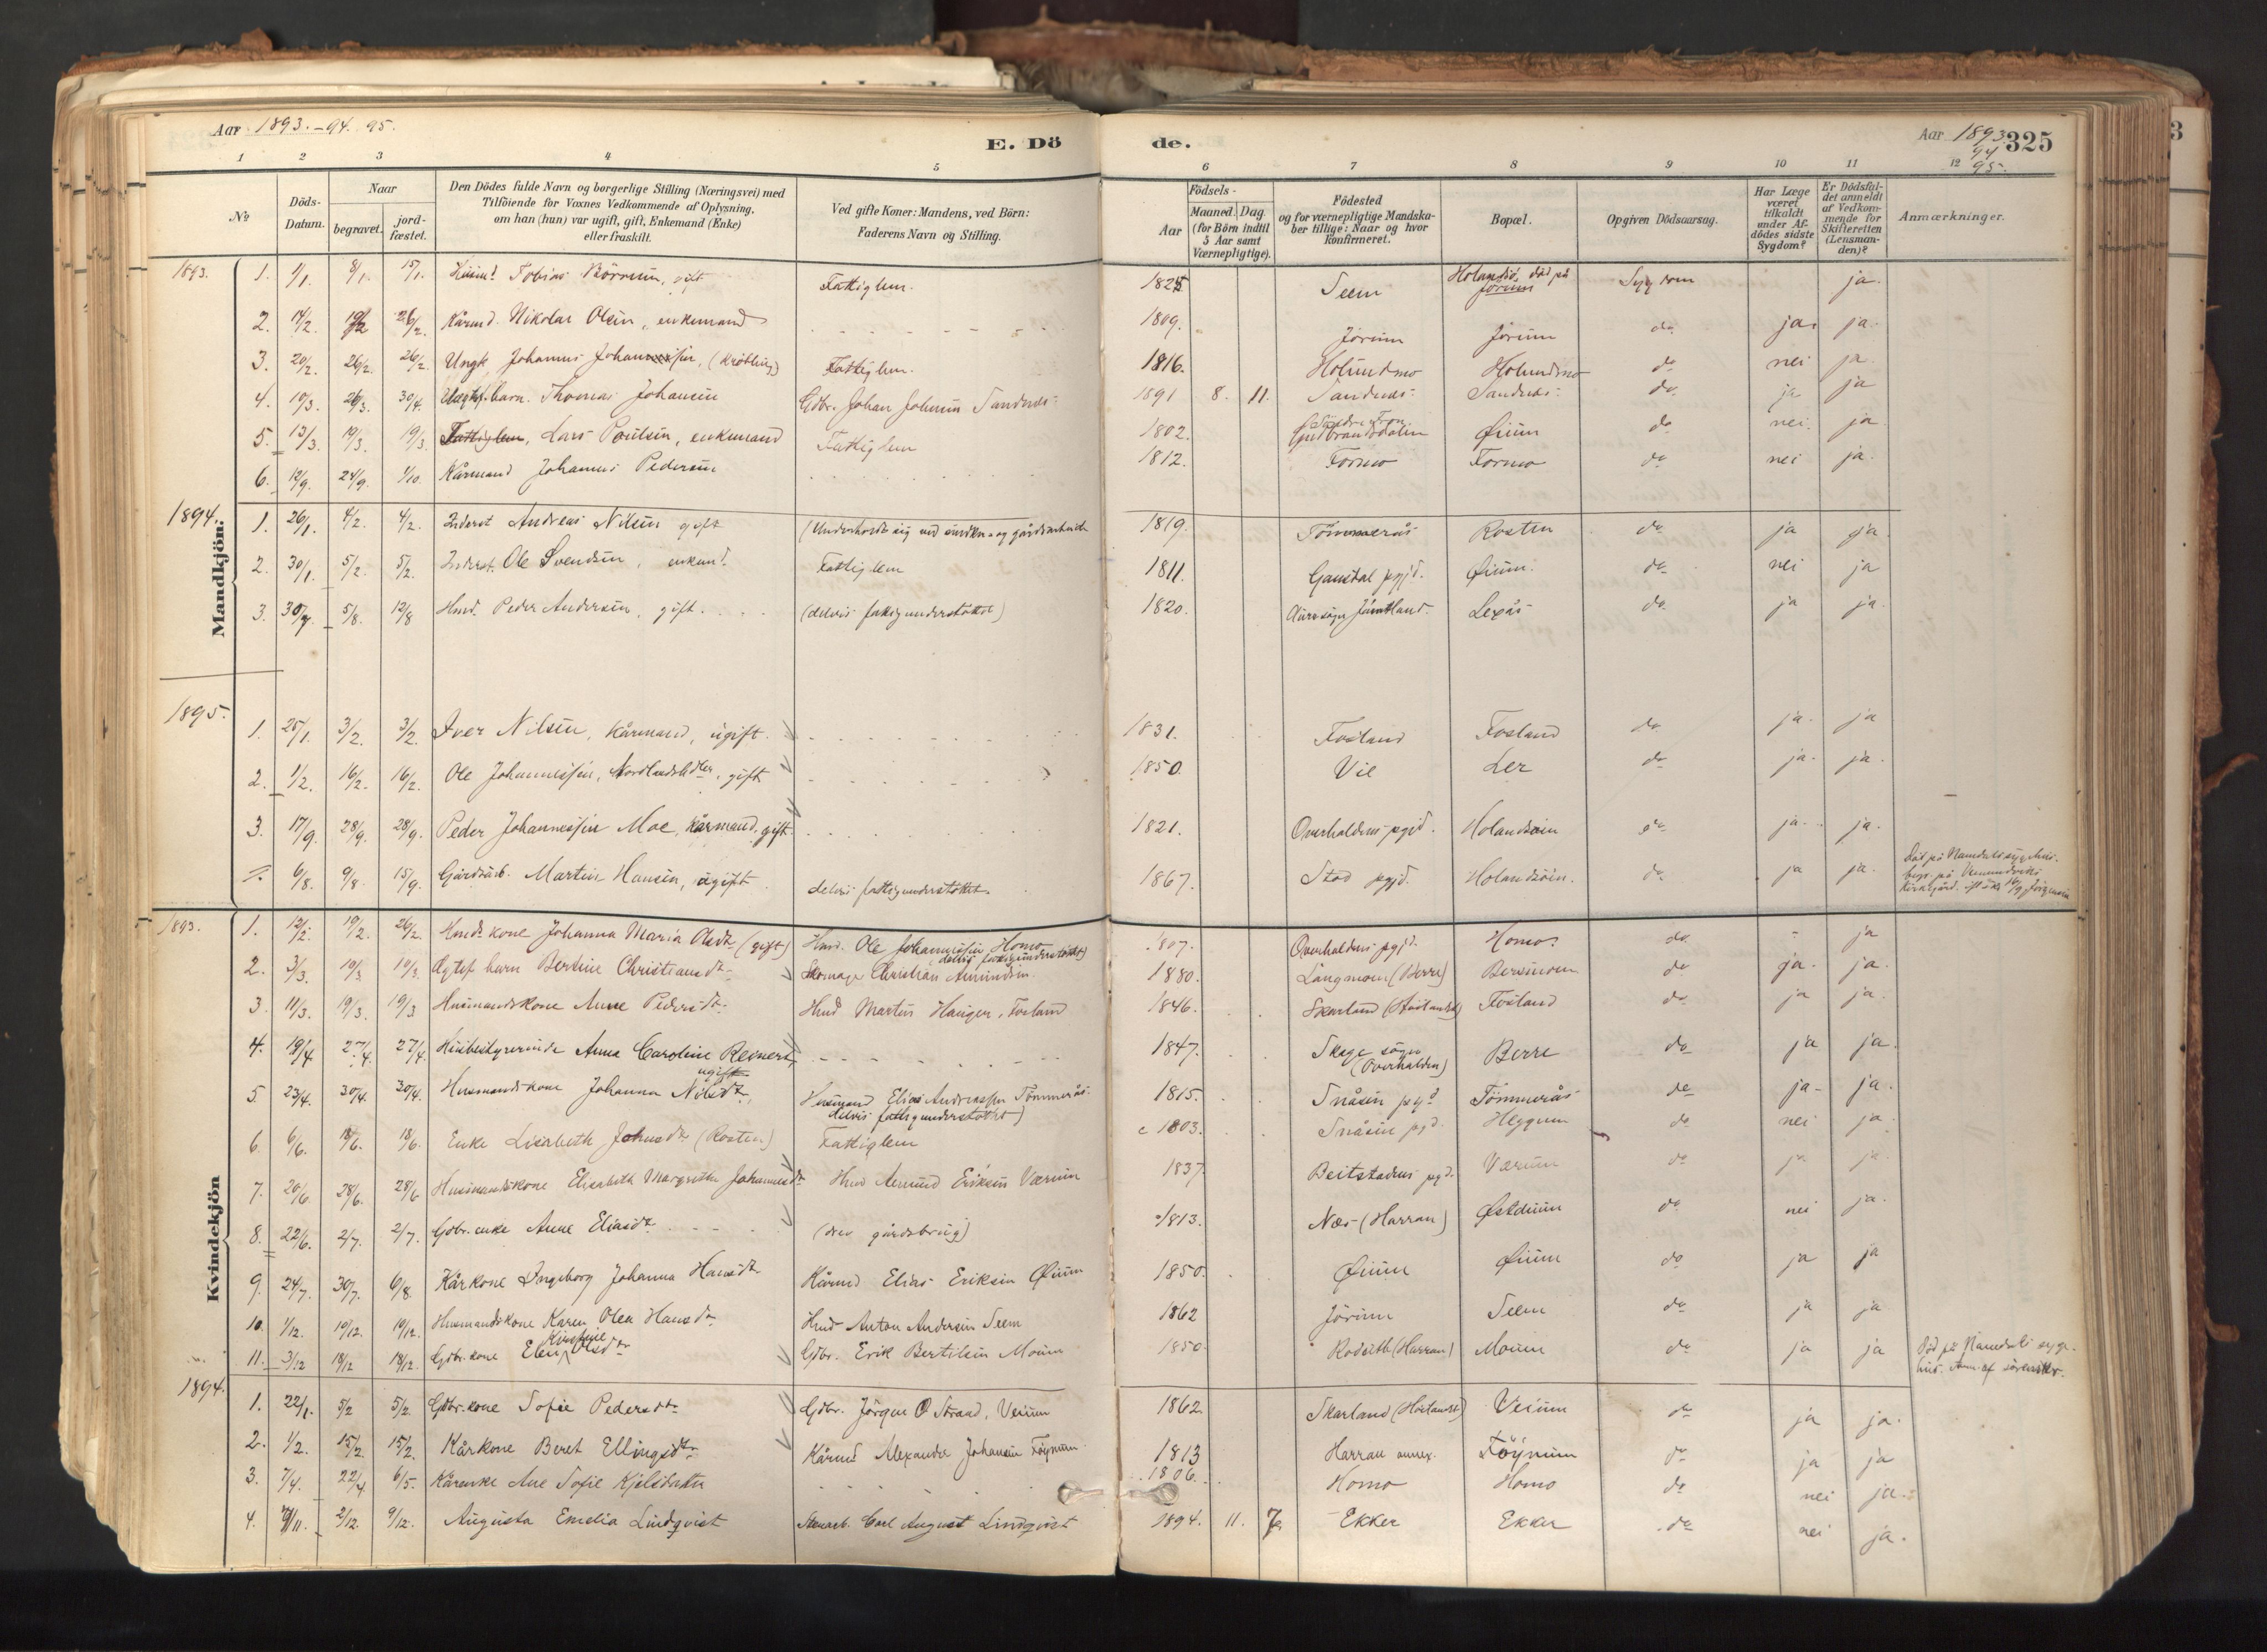 Aar 1893.-94. 95.
E. Dö
de.
Aar 1893. 94 95. 325
1 2 3 4 5 6 7 8 9 10 11 12
No Döds-Datum. Naar begravet. jord-fæstet. Den Dödes fulde Navn og borgerlige Stilling (Næringsvei) med Tilföiende for Voxnes Vedkommende af Oplysning, om han (hun) var ugift, gift, Enkemand (Enke) eller fraskilt. Ved gifte Koner: Mandens, ved Börn: Faderens Navn og Stilling. Födsels- Aar Maaned. Dag. (for Börn indtil 5 Aar samt Værnepligtige). Födested og for værnepligtige Mandskaber tillige: Naar og hvor konfirmeret. Bopæl. Opgiven Dödsaarsag. Har Læge været tilkaldt under Afdödes sidste Sygdom? Er Dödsfaldet anmeldt af Vedkommende for Skifteretten (Lensmanden)? Anmærkninger.
Mandkjön:
1893. 1. 1/1. 8/1. 15/1. Husmd Tobias Börresen, gift Fattiglem. 1825 Seem Holandsö, död på Jörum Sygdom ja.
2. 14/2. 19/2 26/2. Kårmd. Nikolai Olsen, enkemand 1809. Jörum Jörum do ja. ja.
3. 20/2. 26/2. 26/2. Ungk. Johannes Johannessen, (Krøbling) Fattiglem. 1816. Holundmo Holundmo do nei ja.
4. 10/3. 26/3. 30/4. Ægtef. barn. Thomas Johansen Gdbr. Johan Johnsen Sandnes 1891 8. 11. Sandnes Sandnes do ja ja
5. 13/3. 19/3. 19/3. Fattiglem, Lars Poulsen, enkemand Fattiglem 1802. Söndre Fron Gudbrandsdalen Øium do nei. ja.
6. 12/9. 24/9. 1/10. Kårmand Johannes Pedersen 1812. Formo Formo do nei ja.
1894. 1. 26/1. 4/2. 4/2. Inderst Andreas Nilsen gift (Underholdt sig ved snedker- og gårdsarbeide 1819. Tömmerås Rosten do ja ja.
2. 30/1. 5/2. 5/2. Inderst. Ole Svendsen, enkemd. Fattiglem 1811. Gausdal pgjd. Øium. do nei ja
3. 30/7. 5/8. 12/8 Hmd. Peder Andersen, gift. (delvis fattigunderstöttet) 1820. Åre sogn Jämtland. Lexås do ja ja.
1895. 1. 25/1. 3/2. 3/2. Iver Nilsen, kårmand, ugift. 1831. Fosland Fosland do ja. ja
2. 1/2. 16/2. 16/2. Ole Johannessen, gift 1850. Vie Ler do ja. ja.
3. 17/9. 28/9. 28/9. Peder Johannessen Moe, kårmand. gift. 1821. Overhaldens pgjd. Holandsöen do ja. ja.
6/8. 9/8. 15/9. Gårdsarb. Martin Hansen, ugift delvis fattigunderstöttet. 1867. Stod pgjd. Holandsöen. do ja ja. Död på Namdals sygehus. begr. på Vemundviks Kirkegård.
Kvindekjön
1893. 1. 12/2. 19/2. 26/2. Hmds kone Johanna Maria Olsdtr (gift) Hmd. Ole Johannessen Homo delvis fattigunderstöttet) 1807. Overhaldens pgjd. Homo. do - ja
2. 3/3. 19/3. 19/3. Ægtef barn Berthine Christiansdtr Skomager Christian Amundsen. 1880. Langmoen (Berre) Bersmoen do ja. ja.
3. 11/3. 19/3. 19/3. Husmandskone Anne Pedersdtr Hmd Martin Hauger, Fosland 1846. Skarland (Höilandet) Fosland do ja ja.
4. 19/4 27/4. 27/4. Husbestyrerinde Anna Caroline Reinertz, ugift 1847. Skage sogn (Overhalden) Berre do ja ja.
5. 23/4. 30/4. 30/4. Husmandskone Johanna Nilsdtr. Husmand Elias Andreassen Tömmerås. delvis fattigunderstöttet) 1815. Snåsen pgjd Tömmerås do ja- ja.
6. 6/6. 18/6. 18/6. Enke Lisabeth Johnsdtr (Rosten) Fattiglem c 1803. Snåsen pgd. Heggum do nei ja.
7. 20/6. 28/6. 28/6. Husmandskone Elisabeth Margrethe Johannesdtr Hmd Amund Eriksen Værum 1837. Beitstadens pgd. Værum do ja ja.
8. 22/6. 2/7. 2/7. Gdbr. enke Anne Eliasdtr (drev gårdsbrug) 1813. Næs (Harran) Østduun do nei ja.
9. 24/7. 30/7. 6/8. Kårkone Ingeborg Johanna Hansdtr Kårmd Elias Eriksen Øium 1850. Øium Øium do ja ja
10. 1/12. 19/12. 19/12. Husmandskone Karen Olea Hansdtr Hmd Anton Andersen Seem 1862 Jörum Seem do ja ja
11. 3/12 18/12 18/12. Gdbr. kone Elen Kirstine Olsdtr Gdbr. Erik Bertilsen Moum 1850. Rodseth (Harran) Moum do ja ja Död på Namdals sygehus.
1894. 1. 22/1. 5/2 5/2. Gdbr.kone Sofie Pedersdtr Gdbr. Jörgen O Strand, Veium 1862 Skarland (Höilandet) Veium do ja ja.
2. 1/2. 15/2. 15/2. Kårkone Beret Ellingsdtr Kårmd Alexander Johansen Föynum. 1813 Harran annex. Föynum do ja ja
3. 7/4. 22/4 6/5. Kårenke Ane Sofie Kjelsdatter 1806. Homo Homo do nei ja.
4. 7/11. 2/12. 9/12. Augusta Emelia Lindqvist Stenarb. Carl August Lindqvist 1894. 11. 7. Ekker Ekker do nei ja.